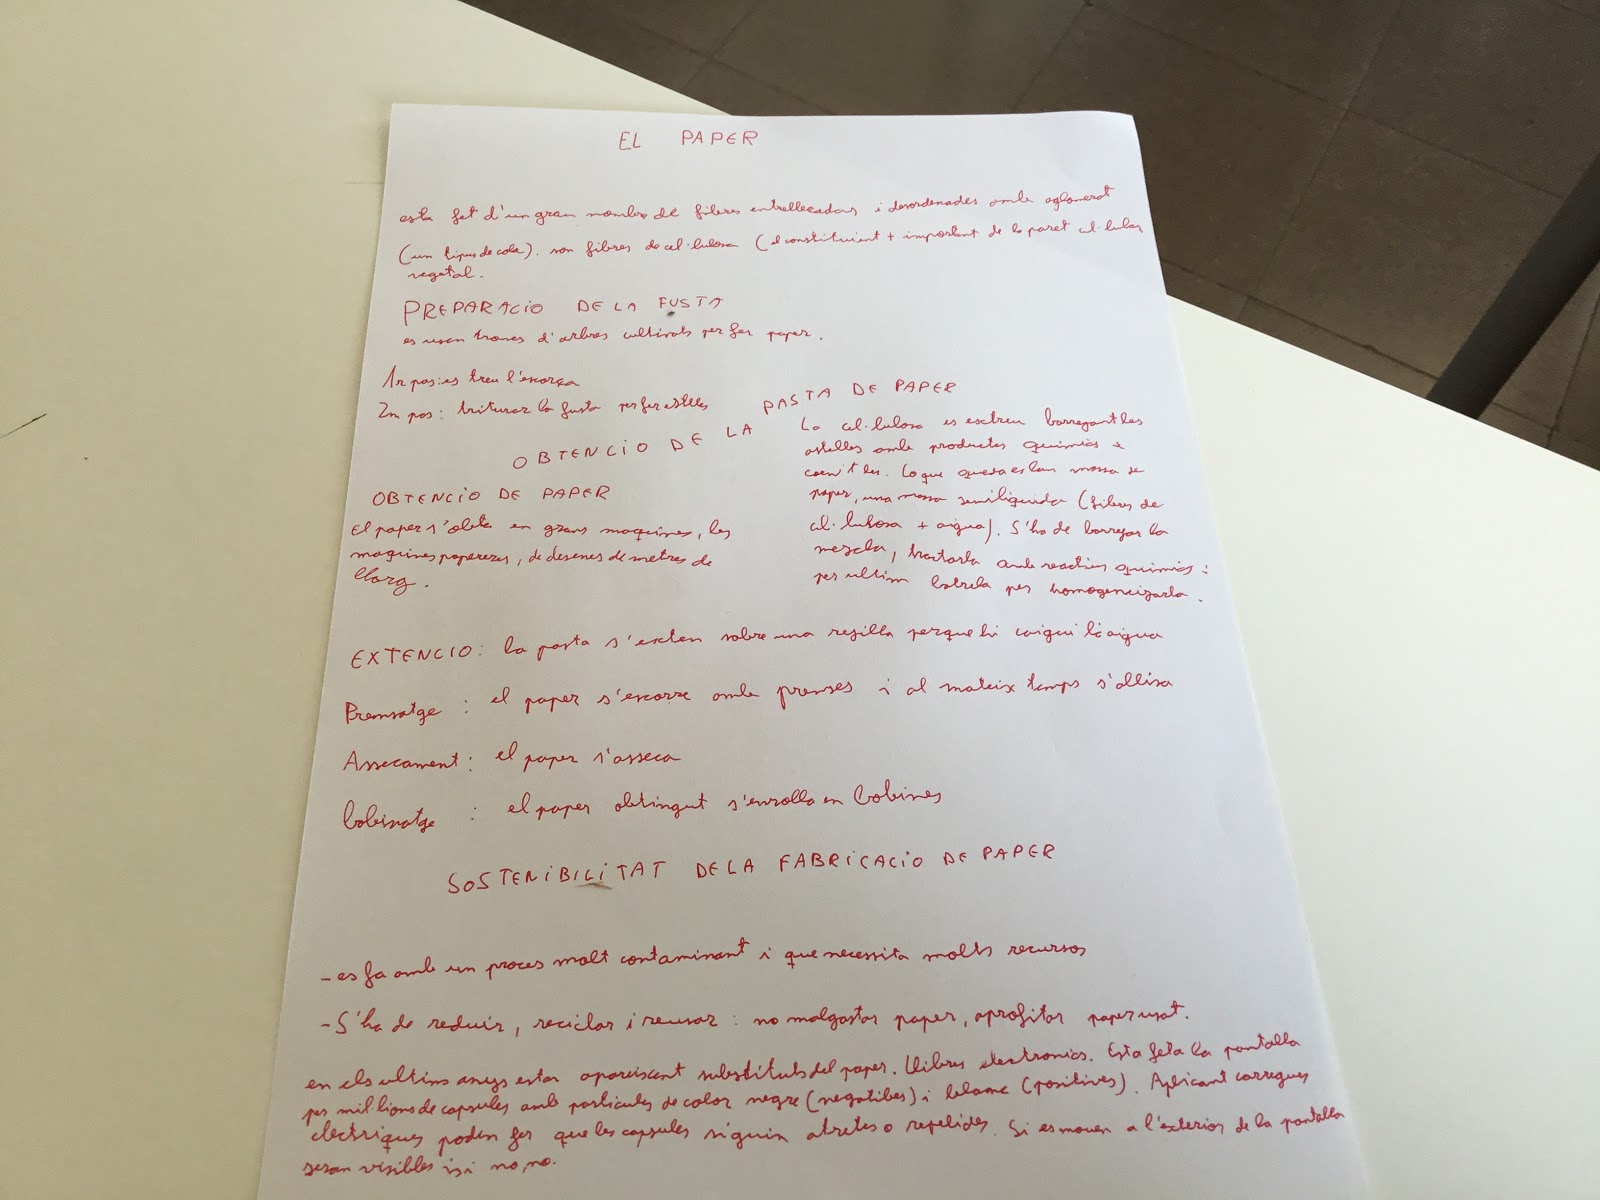 EL PAPER
esta fet d'un gran nombre de fibres entrellecadas i desordenades amb aglomerat
(un tipus de cola). son fibres de cel·lulosa (el constituient + important de la paret cel·lular
vegetal.
PREPARACIO DE LA FUSTA
es usen troncs d'arbres cultivats per fer paper.
1r pas: es treu l'escorça
2n pas: triturar la fusta per fer estelles
OBTENCIO DE LA PASTA DE PAPER
La cel·lulosa es extreu barrejant les
astelles amb productes quimics i
coent les. Lo que queda es la massa de
paper, una massa semiliquida (fibres de
cel·lulosa + aigua). S'ha de barrejar la
mezcla, tractarla amb reactius quimics i
per ultim batrela per homogeneizarla.
OBTENCIO DE PAPER
El paper s'obte en grans maquines, les
maquines papereres, de desenes de metres de
llarg.
EXTENCIO: la pasta s'exten sobre una rejilla perque hi caigui l'aigua
Premsatge: el paper s'escorre amb premses i al mateix temps s'allisa
Assecament: el paper s'asseca
bobinatge: el paper obtingut s'enrolla en bobines
SOSTENIBILITAT DE LA FABRICACIO DE PAPER
- es fa amb un proces molt contaminant i que necessita molts recursos
- S'ha de reduir, reciclar i reusar: no malgastar paper, aprofitar paper usat.
en els ultims anys estan apareixent substituts del paper. Llibres electronics. Esta feta la pantalla
per mil·lions de capsules amb particules de color negre (negatibes) i blanc (positives). Aplicant carregues
electriques poden fer que les capsules siguin atretes o repelides. Si es mouen a l'exterior de la pantalla
seran visibles i si no, no.